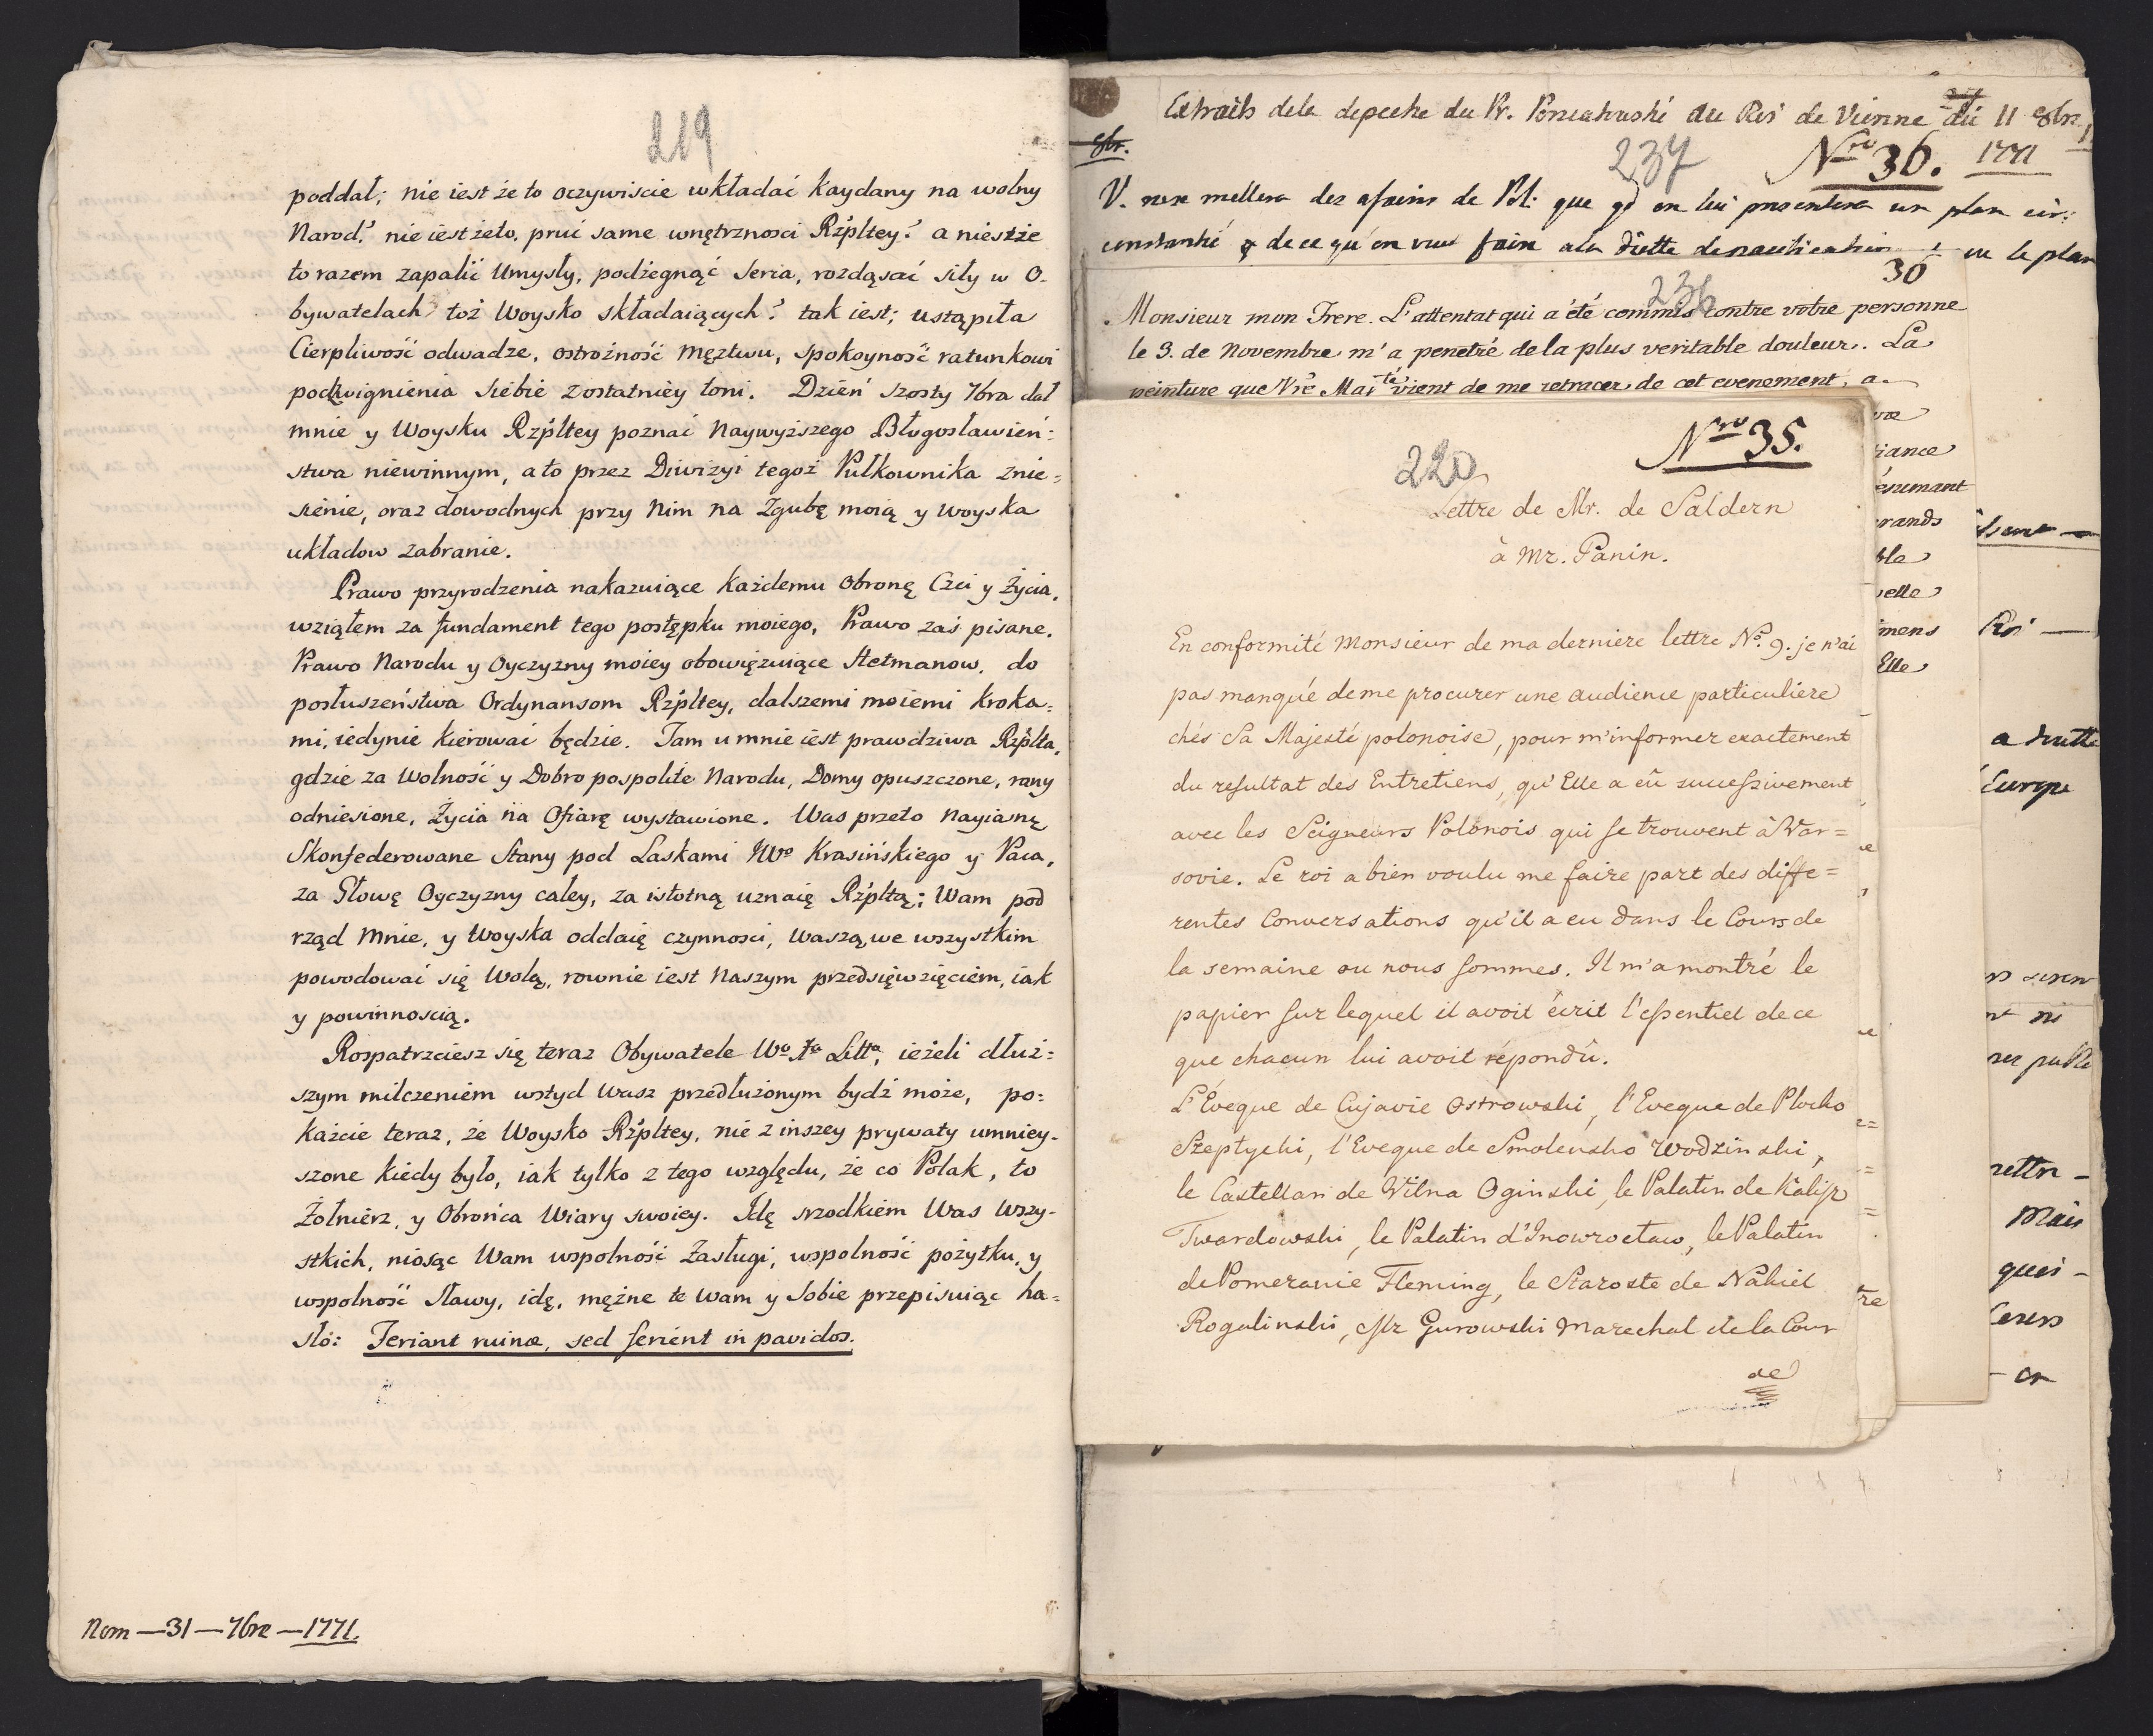 219
poddał; nie iest że to oczywiscie wkładać Kaydany na wolny
Narod? nie iest żeto, pruć same wnętrznosci Rzpltey? a nieszże
to razem zapalić Umysły, podżegnąć Seria, rozdąsać siły w O-
bywatelach toż Woysko składaiących? tak iest; ustąpiła
Cierpliwość odwadze, ostrożność męztwu, spokoyność ratunkowi
podźwignienia siebie z ostatniéy toni. Dzień szosty 7bra dał
mnie y Woysku Rzpltey poznać Naywyższego Błogosławień=
stwa niewinnym, a to przez Diwizyi tegoż Pułkownika znie=
sienie, oraz dowodnych przy Nim na Zgubę moią y woyska
układow zabranie.
Prawo przyrodzenia nakazuiące Każdemu Obronę Czci y Życia,
wziąłem za fundament tego postępku moiego, Prawo zaś pisane,
Prawo Narodu y Oyczyzny moiey obowięzuiące Hetmanow, do
posłuszeństwa Ordynansom Rzpltey, dalszemi moiemi Kroka=
mi, iedynie Kierować będzie. Tam u mnie iest prawdziwa Rzplta,
gdzie za Wolność y Dobro pospolite Narodu, Domy opuszczone, rany
odniesione, Życia na Ofiarę wystawione. Was przeto Nayiasnę
Skonfederowane Stany pod Laskami JWo Krasińskiego y Paca,
za Głowę Oyczyzny całey, za istotną uznaię Rzpltą; Wam pod
rząd Mnie, y Woyska oddaię czynnosci, Waszą, we wszystkim
powodować się Wolą, rownie iest Naszym przedsięwzięciem, iak
y powinnoscią.
Rospatrzciesz się teraz Obywatele Wo Xa Litto, ieżeli dłuż=
szym milczeniem wstyd Wasz przedłużonym bydź może, po=
Każcie teraz, że Woysko Rzpltey, nie z inszey prywaty umniey-
szone Kiedy było, iak tylko z tego względu, że co Polak, to
Żołnierz, y Obrońca Wiary swoiey. Idę srzodkiem Was Wszy-
stkich, niosąc Wam wspolność Zasługi, wspolność pożytku, y
wspolność Sławy, idę, mężne te Wam y Sobie przepisuiąc ha=
sło: Feriant ruinæ, sed ferient in pavidos.
Nom — 31 — 7bre — 1771.
Extraits dela depeche du Pr. Poniatowski au Roi de Vienne du 11 8bre
8br.
237
Nro 36. 1771
V. nese mellera des afaires de Pol: que qd on lui presentera un plan cir:
constantié & de ce qu'on veut faire a la diette de pacification
ou le plan
36
236
Monsieur mon Frere. L'attentat qui a été commis contre votre personne
le 3. de Novembre m'a penetré de la plus veritable douleur. La
peinture que Vre Maité vient de me retracer de cet evenement, a
Nro 35.
220
Lettre de Mr. de Saldern
à Mr. Panin.
En conformité Monsieur de ma derniere lettre No. 9. je n'ai
pas manqué de me procurer une audience particuliere
chés Sa Majesté polonoise, pour m'informer exactement
du resultat des Entretiens, qu'Elle a eû successivement
avec les Seigneurs Polonois qui se trouvent à War=
sovie. Le roi a bien voulu me faire part des diffe=
rentes Conversations qu'il a eu dans le Cours de
la semaine ou nous sommes. Il m'a montré le
papier sur lequel il avoit écrit l'essentiel de ce
que chacun lui avoit répondû.
L'Éveque de Cujavie Ostrowski, l'Eveque de Plocko
Szeptycki, l'Eveque de Smolensko Wodzinski,
le Castellan de Wilna Oginski, le Palatin de Kalisz
Twardowski, le Palatin d'Inowroctaw, le Palatin
de Pomeranie Fleming, le Staroste de Nakiel
Rogalinski, Mr Gurowski Marechal de la Cour
de
iance
esumant
rands
ble
velle
mens
Elle
Roi —
Europe
mer publi
Mais
tre